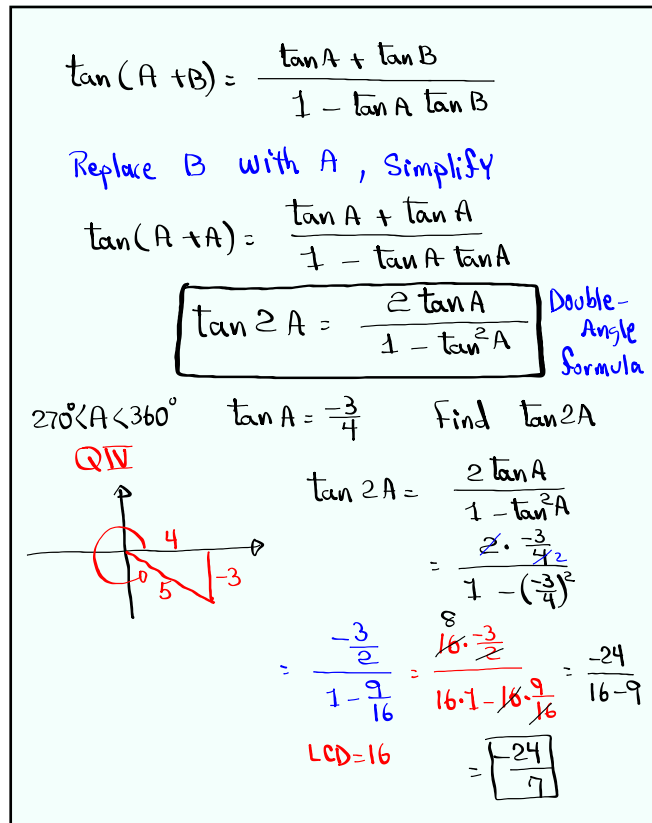 tan(A+B) = (tanA + tanB)/(1 - tanA tanB)
Replace B with A, Simplify
tan(A+A) = (tanA + tanA)/(1 - tanA tanA)
tan2A = (2tanA)/(1 - tan²A) Double-Angle formula
270°<A<360° tanA = -3/4 Find tan2A
QIV
4
-3
5
tan2A = (2tanA)/(1 - tan²A)
= (2 · -3/4 2)/(1 - (-3/4)²)
= (-3/2)/(1 - 9/16) = (8 16 · -3/2)/(16·1 - 16·9/16) = -24/(16-9)
LCD=16 = -24/7